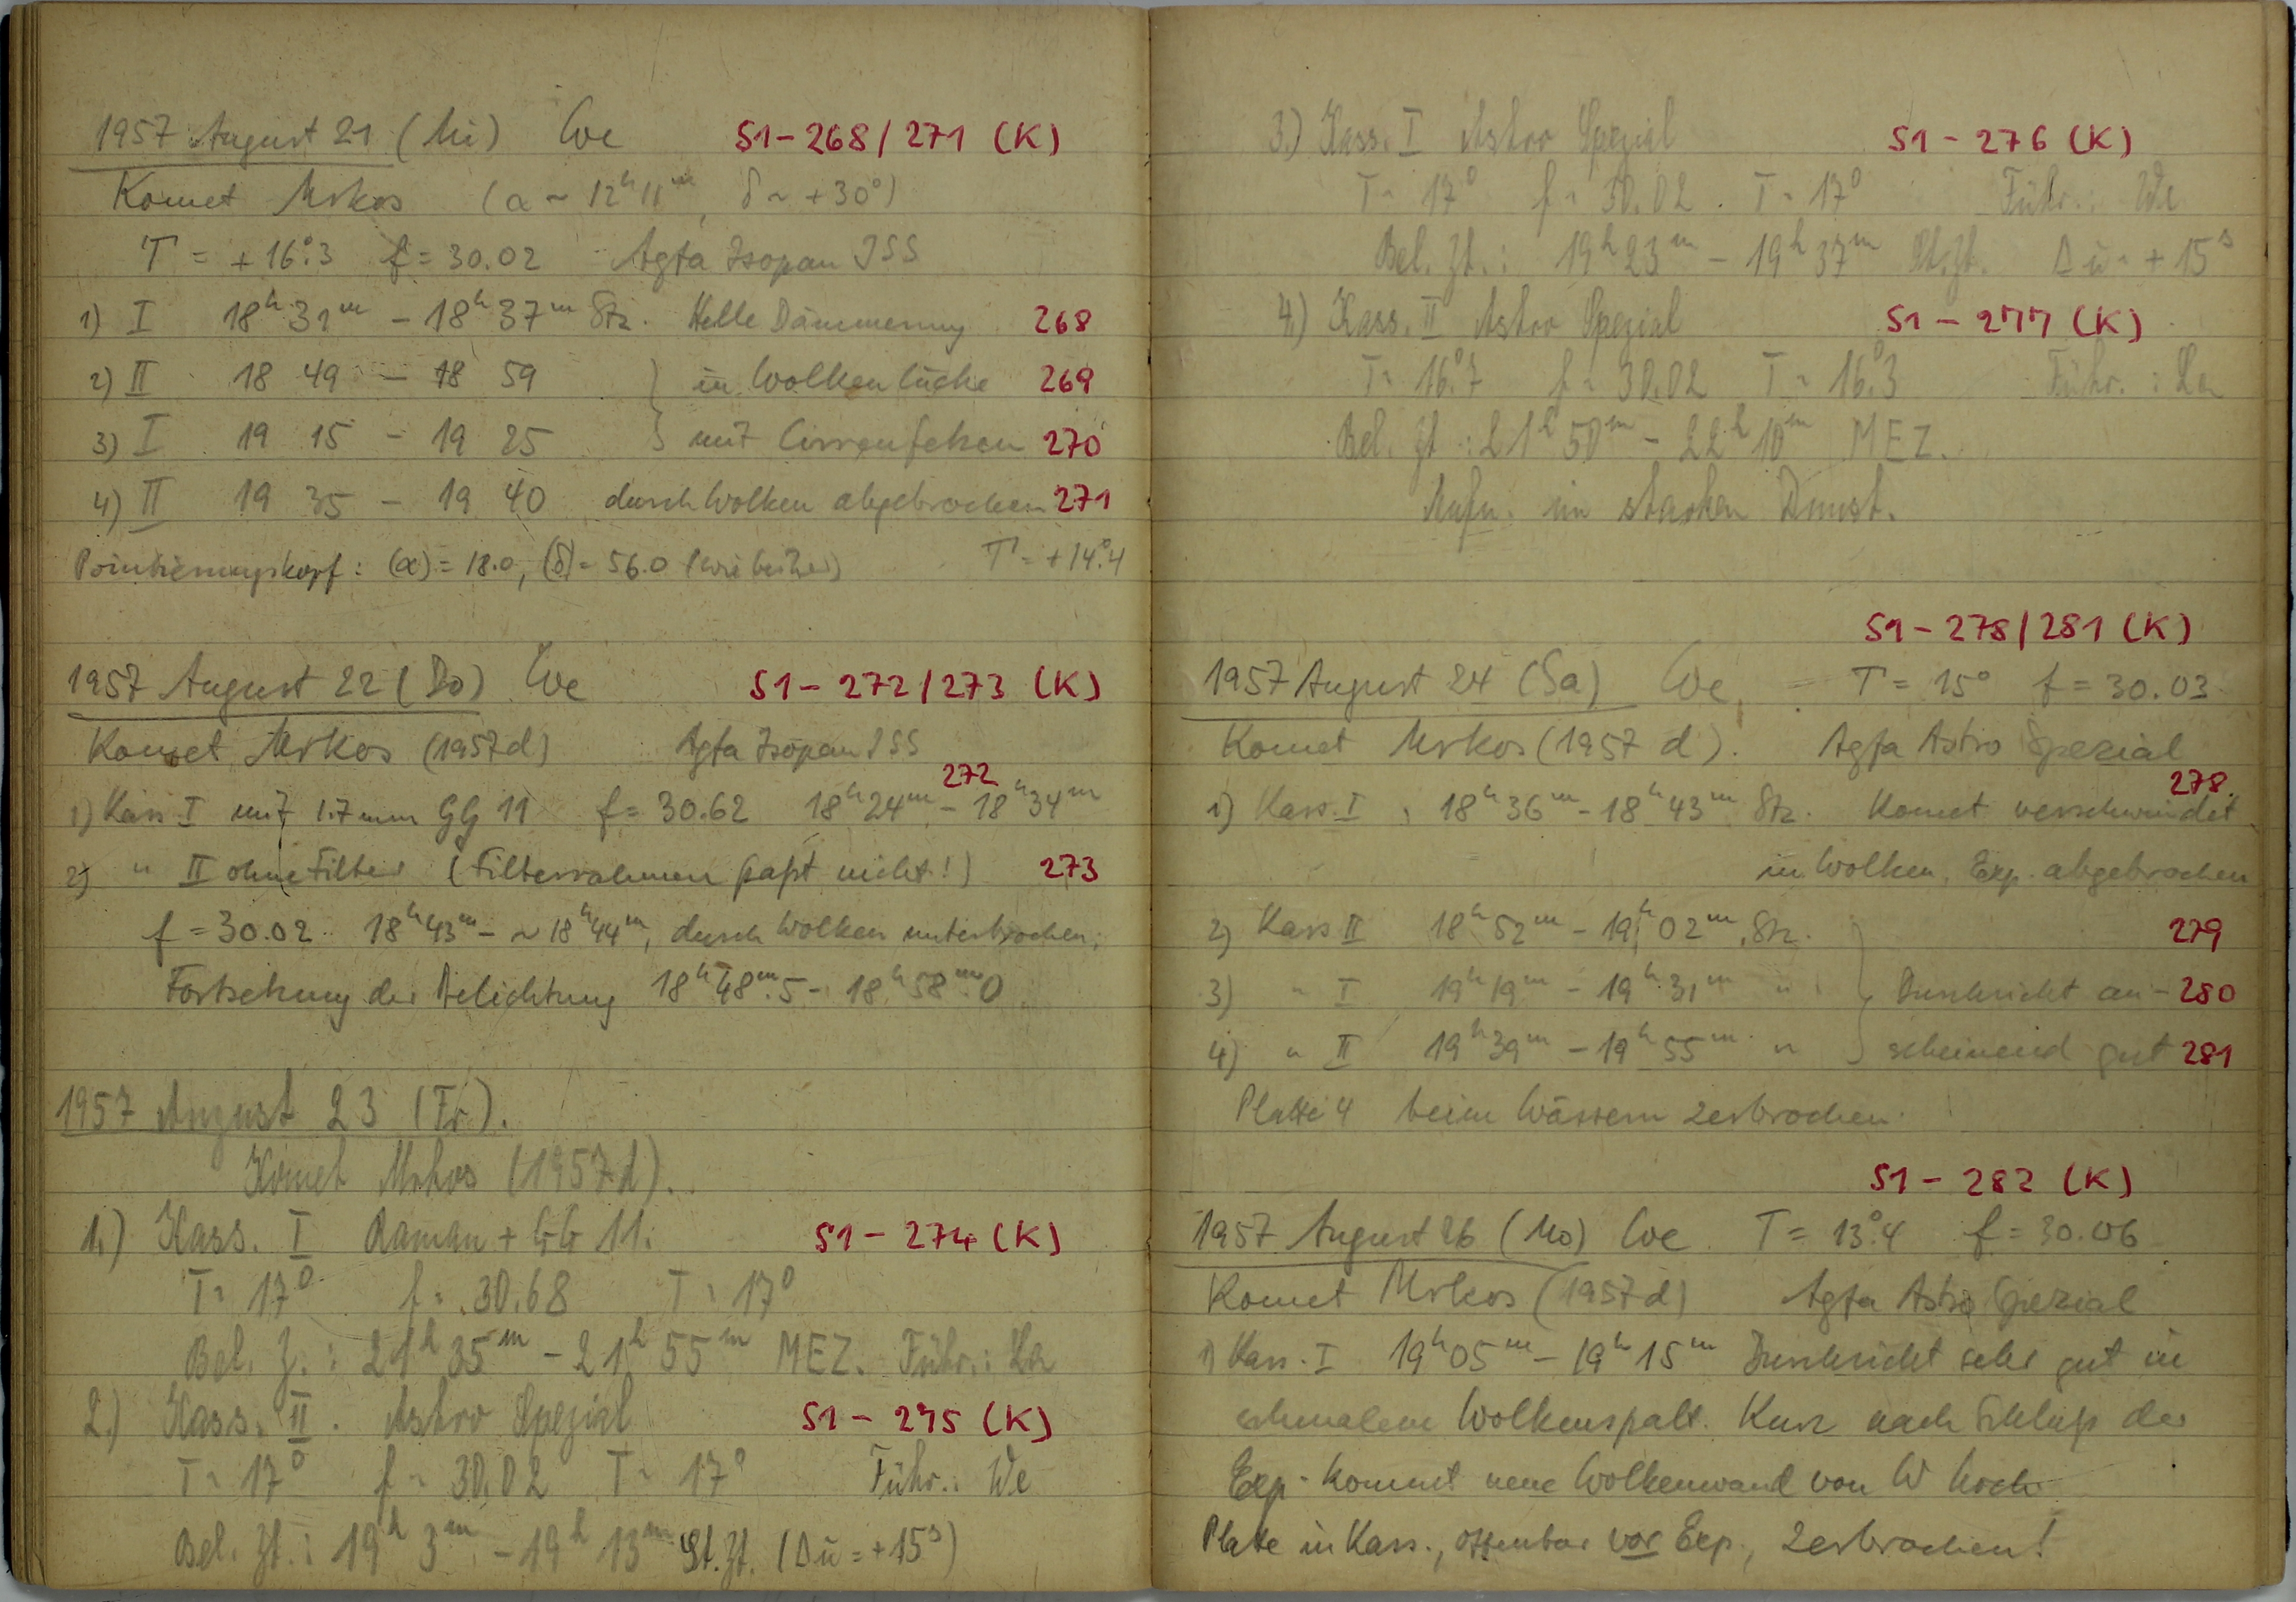 1957 August 21 (Mi) We S1-268/271 (K)
Komet Mrkos (α ~ 12ʰ11ᵐ, δ ~ +30°)
T = +16°.3 f = 30.02 Agfa Isopan ISS
1) I 18ʰ 31ᵐ - 18ʰ 37ᵐ Stz. Helle Dämmerung 268
2) II 18 49 - 18 59 } in Wolkenlücke 269
3) I 19 15 - 19 25 } mit Cirrenfetzen 270
4) II 19 35 - 19 40 durch Wolken abgebrochen 271
Pointierungskopf: (α) = 18.0, (δ) = 56.0 (wie bisher) T = +14°.4
1957 August 22 (Do) We S1-272/273 (K)
Komet Mrkos (1957d) Agfa Isopan ISS
272
1) Kass I mit 1.7mm GG 11 f = 30.62 18ʰ24ᵐ - 18ʰ34ᵐ
2) " II ohne Filter (Filterrahmen paßt nicht!) 273
f = 30.02 18ʰ43ᵐ - ~18ʰ44ᵐ, durch Wolken unterbrochen;
Fortsetzung der Belichtung 18ʰ48ᵐ.5 - 18ʰ58ᵐ.0
1957 August 23 (Fr).
Komet Mrkos (1957d).
1.) Kass. I Raman + GG 11. S1-274 (K)
T = 17° f = 30.68 T = 17°
Bel. Z.: 21ʰ 35ᵐ - 21ʰ 55ᵐ MEZ. Führ.: La
2.) Kass. II. Astro Spezial S1-275 (K)
T = 17° f = 30.02 T = 17° Führ.: We
Bel. Zt.: 19ʰ 3ᵐ - 19ʰ 13ᵐ St.Zt. (Δu = +15ˢ)
3.) Kass. I Astro Spezial S1-276 (K)
T = 17° f = 30.02. T = 17° Führ.: We
Bel. Zt.: 19ʰ 23ᵐ - 19ʰ 37ᵐ St.Zt. Δu = +15ˢ
4.) Kass. II Astro Spezial S1-277 (K)
T = 16°.7 f = 30.02 T = 16°.3 Führ.: La
Bel. Zt.: 21ʰ 50ᵐ - 22ʰ 10ᵐ MEZ.
Aufn. im starken Dunst.
S1-278/281 (K)
1957 August 24 (Sa) We T = 15° f = 30.03
Komet Mrkos (1957 d). Agfa Astro Spezial
278
1) Kass. I, 18ʰ36ᵐ - 18ʰ43ᵐ Stz. Komet verschwindet
in Wolken, Exp. abgebrochen
2) Kass II 18ʰ 52ᵐ - 19ʰ 02ᵐ Stz. 279
3) " I 19ʰ19ᵐ - 19ʰ31ᵐ " } Durchsicht an- 280
4) " II 19ʰ39ᵐ - 19ʰ55ᵐ " } scheinend gut 281
Platte 4 beim Wässern zerbrochen
S1-282 (K)
1957 August 26 (Mo) We T = 13°.4 f = 30.06
Komet Mrkos (1957d) Agfa Astro Spezial
1) Kass. I 19ʰ05ᵐ - 19ʰ15ᵐ Durchsicht sehr gut in
schmalem Wolkenspalt. Kurz nach Schluß der
Exp. kommt neue Wolkenwand von W hoch
Platte in Kass., offenbar vor Exp., zerbrochen!